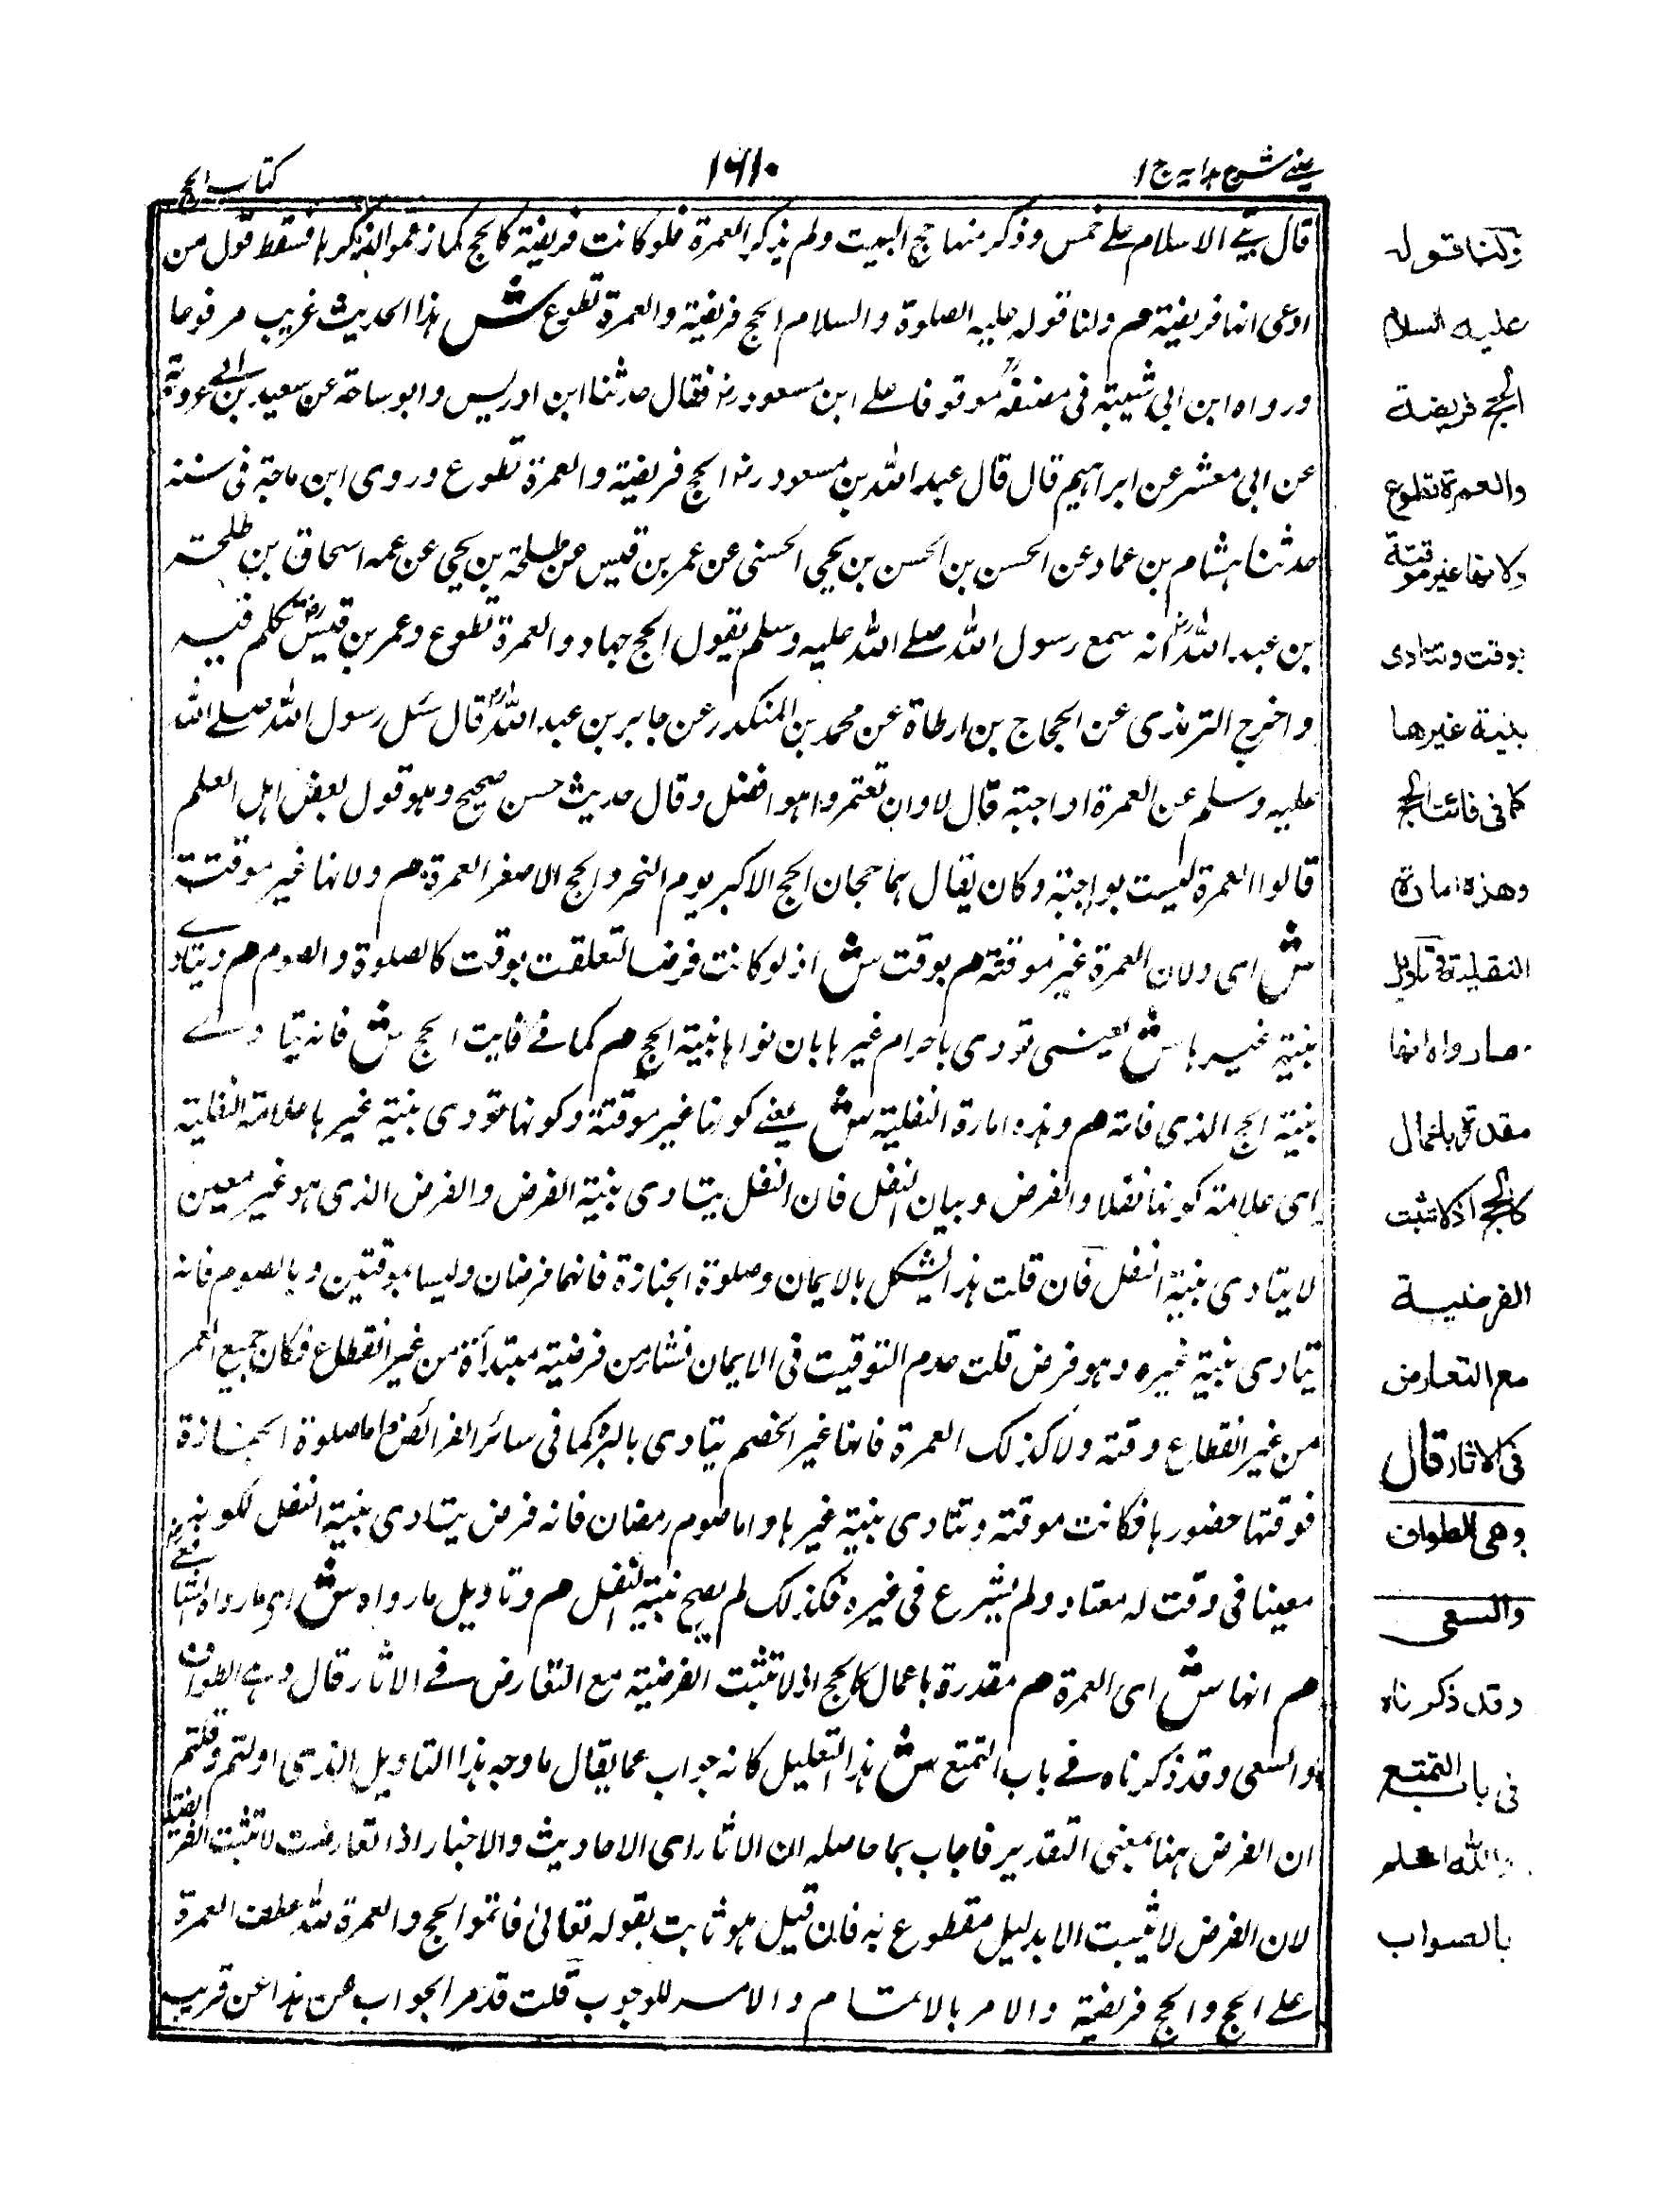 عینی شرح هدایه ج ۱
۱۶۱۰
کتاب الحج
قال بنی الاسلام علی خمس وذکر منها حج البیت ولم یذکر العمرة فلو کانت فریضة کالحج کما زعموا لذکرها فسقط قول من
ادعی انها فریضة م ولنا قوله علیه الصلوة والسلام الحج فریضة والعمرة تطوع ش هذا الحدیث غریب مرفوعا
ورواه ابن ابی شیبة فی مصنفه موقوفا علی ابن مسعود رض فقال حدثنا ابن ادریس وابو ساحة عن سعید بن ابی عروبة
عن ابی معشر عن ابراهیم قال قال عبد الله بن مسعود رض الحج فریضة والعمرة تطوع وروی ابن ماجة فی سننه
حدثنا هشام بن عماد عن الحسن بن الحسن بن یحیی الحسنی عن عمر بن قیس عن طلحة بن یحیی عن عمه اسحاق بن طلحة
بن عبد الله رض انه سمع رسول الله صلے الله علیه وسلم یقول الحج جهاد والعمرة تطوع وعمر بن قیس رض تکلم فیه
واخرج الترمذی عن الحجاج بن ارطاة عن محمد بن المنکدر عن جابر بن عبد الله رض قال سئل رسول الله صلے الله
علیه وسلم عن العمرة اواجبة قال لا وان تعتمروا هو افضل وقال حدیث حسن صحیح وهو قول بعض اهل العلم
قالوا العمرة لیست بواجبة وکان یقال هما حجان الحج الاکبر یوم النحر والحج الاصغر العمرة م ولانها غیر موقتة
ش ای ولان العمرة غیر موقتة م بوقت ش اذ لو کانت فرضا لتعلقت بوقت کالصلوة والصوم م ویتادی
بنیة غیرها ش یعنی تودی باحرام غیرها بان نواها بنیة الحج م کما فی فایت الحج ش فانه یتادی
بنیة الحج الذی فاته م وهذه امارة النفلیة ش یعنے کونها غیر موقتة وکونها تودی بنیة غیرها علامة النفلیة
ای علامة کونها نفلا والفرض وبیان النفل فان النفل یتادی بنیة الفرض والفرض الذی هو غیر معین
لا یتادی بنیة النفل فان قلت هذا یشکل بالایمان وصلوة الجنازة فانهما فرضان ولیسا بموقتین وبالصوم فانه
یتادی بنیة غیره وهو فرض قلت عدم التوقیت فی الایمان نشأ من فرضیته مبتدأة من غیر انقطاع فکان جمیع العمر
من غیر انقطاع وقته ولا کذلک العمرة فانها غیر الخصم یتادی بالبرة کما فی سائر الفرائض واما صلوة الجنازة
فوقتها حضورها فکانت موقتة وتتادی بنیة غیرها واما صوم رمضان فانه فرض یتادی بنیة النفل لکونه
معینا فی وقت له معتاد ولم یشرع فی غیره فکذلک لم یصح نیة النفل م وتاویل ما رواه ش ای ما رواه الشافعے رح
م انها ش ای العمرة م مقدرة باعمال کالحج اذ لا تثبت الفرضیة مع التعارض فے الاثار قال وهے الطواف
والسعی وقد ذکرناه فے باب التمتع ش هذا التعلیل کانه جواب عما یقال ما وجه هذا التاویل الذی اولتم وقلتم
ان الفرض هنا بمعنی التقدیر فاجاب بما حاصله ان الاثار ای الاحادیث والاخبار اذا تعارضت لا تثبت الفریضة
لان الفرض لا یثبت الا بدلیل مقطوع به فان قیل هو ثابت بقوله تعالیٰ فاتموا الحج والعمرة لله عطف العمرة
علے الحج والحج فریضة والامر بالاتمام والامر للوجوب قلت قد مر الجواب عن هذا عن قریب
قوله
علیه السلام
الحج فریضة
والعمرة تطوع
ولانها غیر موقتة
بوقت وتتادی
بنیة غیرها
کما فی فائت الحج
وهذه امارة
النفلیة وتاویل
ما رواه انها
مقدرة باعمال
کالحج اذ لا تثبت
الفرضیة
مع التعارض
فی الاثار قال
وهی الطواف
والسعی
وقد ذکرناه
فی باب التمتع
والله اعلم
بالصواب